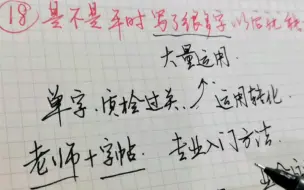 ⑱是不是平时写了很多字
大量运用
单字,质检过关.↗运用转化
老师+字帖.专业入门方法